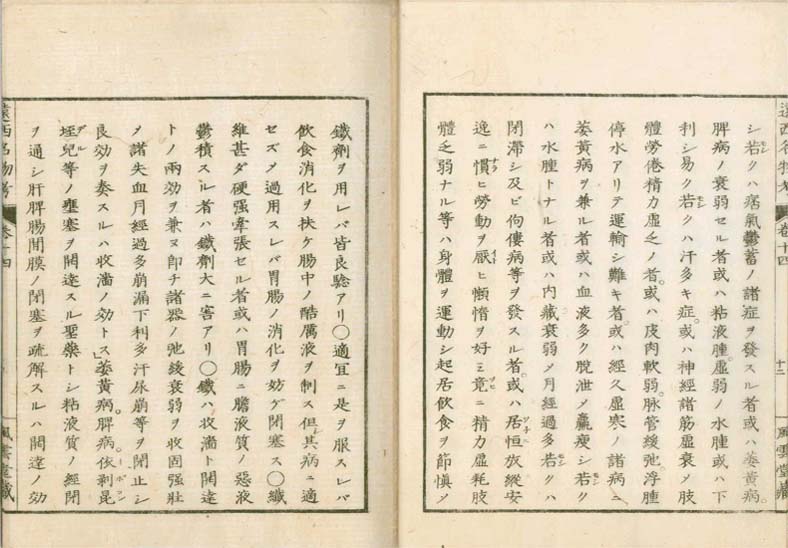 シ若クハ痞氣鬱蓄ノ諸症ヲ發スル者或ハ萎黄病。
脾病ノ衰弱セル者或ハ粘液腫。虚弱ノ水腫或ハ下
利シ易ク若クハ汗多キ症。或ハ神經諸筋虚衰メ肢
體勞倦精力虚乏ノ者。或ハ皮肉軟弱。脉管緩弛。浮腫
停水アリテ運輸シ難キ者。或ハ經久虚寒ノ諸病ニ
萎黄病ヲ兼ル者或ハ血液多ク脱泄メ羸瘦シ若ク
ハ水腫トナル者或ハ内藏衰弱メ月經過多若クハ
閉滞シ及ビ佝僂病等ヲ發スル者。或ハ居恒放縱安
逸ニ慣ヒ勞動ヲ厭ヒ懶惰ヲ好ミ竟ニ精力虚耗肢
體乏弱ナル等ハ身體ヲ運動シ起居飲食ヲ節愼メ
遠西名物考 卷十四
十二
風雲堂藏
鐵劑ヲ用レバ皆良驗アリ〇適宜ニ是ヲ服スレバ
飲食消化ヲ扶ケ腸中ノ酷厲液ヲ制ス但其病ニ適
セズメ過用スレバ胃腸ノ消化ヲ妨ゲ閉塞ス〇纎
維甚ダ硬强牽張セル者或ハ胃腸ニ膽液質ノ惡液
鬱積スル者ハ鐵劑大ニ害アリ〇鐵ハ收濇ト開達
トノ兩効ヲ兼ヌ即チ諸器ノ弛緩衰弱ヲ收固强壯
メ諸失血月經過多崩漏下利多汗尿崩等ヲ閉止シ
良効ヲ奏スルハ收濇ノ効トス」萎黄病。脾病。依剥昆
垤兒等ノ壅塞ヲ開達スル聖藥トシ粘液質ノ經閉
ヲ通シ肝脾腸間膜ノ閉塞ヲ疏解スルハ開達ノ効
遠西名物考 卷十四
風雲堂藏